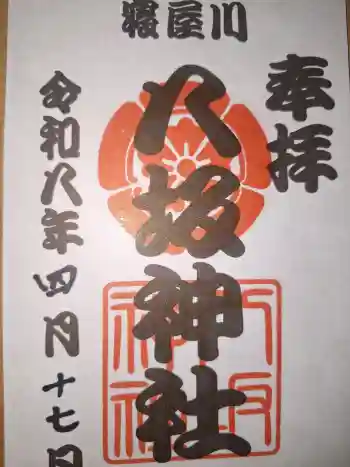 寝屋川
奉拝
八坂神社
令和八年四月十七日
八坂
神社